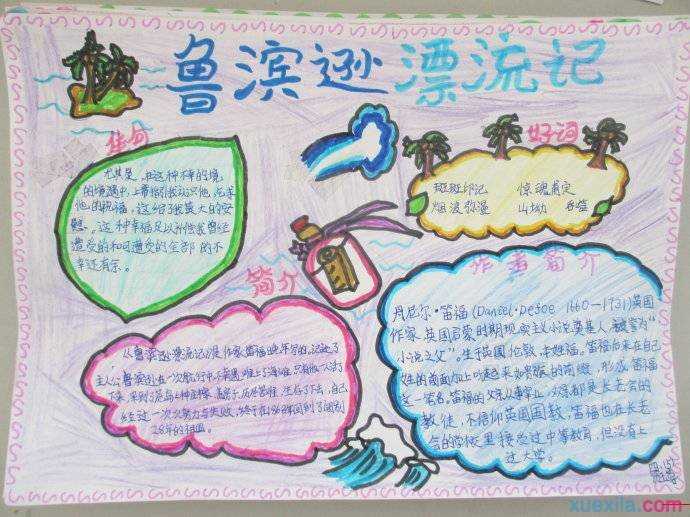 鲁滨逊漂流记
佳句
尤其是,在这种不幸的境
的境遇中,上帝指引我认识他,乞求
他的祝福,这给了我莫大的安
慰。这种幸福足以补偿我曾经
遭受的和可遭受的全部的不
幸还有余。
好词
斑斑印记 惊魂甫定
烟波弥漫 山坳
简介
《鲁滨逊漂流记》是作家笛福晚年写的,
主人公鲁滨逊在一次航行中
28年的祖国。
作者简介
丹尼尔·笛福(Daniel·Defoe 1660—1731)英国
作家,英国启蒙时期现实主义小说奠基人,被誉为“
小说之父”。生于英国伦敦,本姓福。笛福后来在自己
姓的前面加上
这一笔名。笛福的父亲从事宰业,父亲都是长老会的
教徒,不信仰英国国教,笛福也在长老
会的学校里接受过中等教育,但没有上
过大学。
xuexila.com